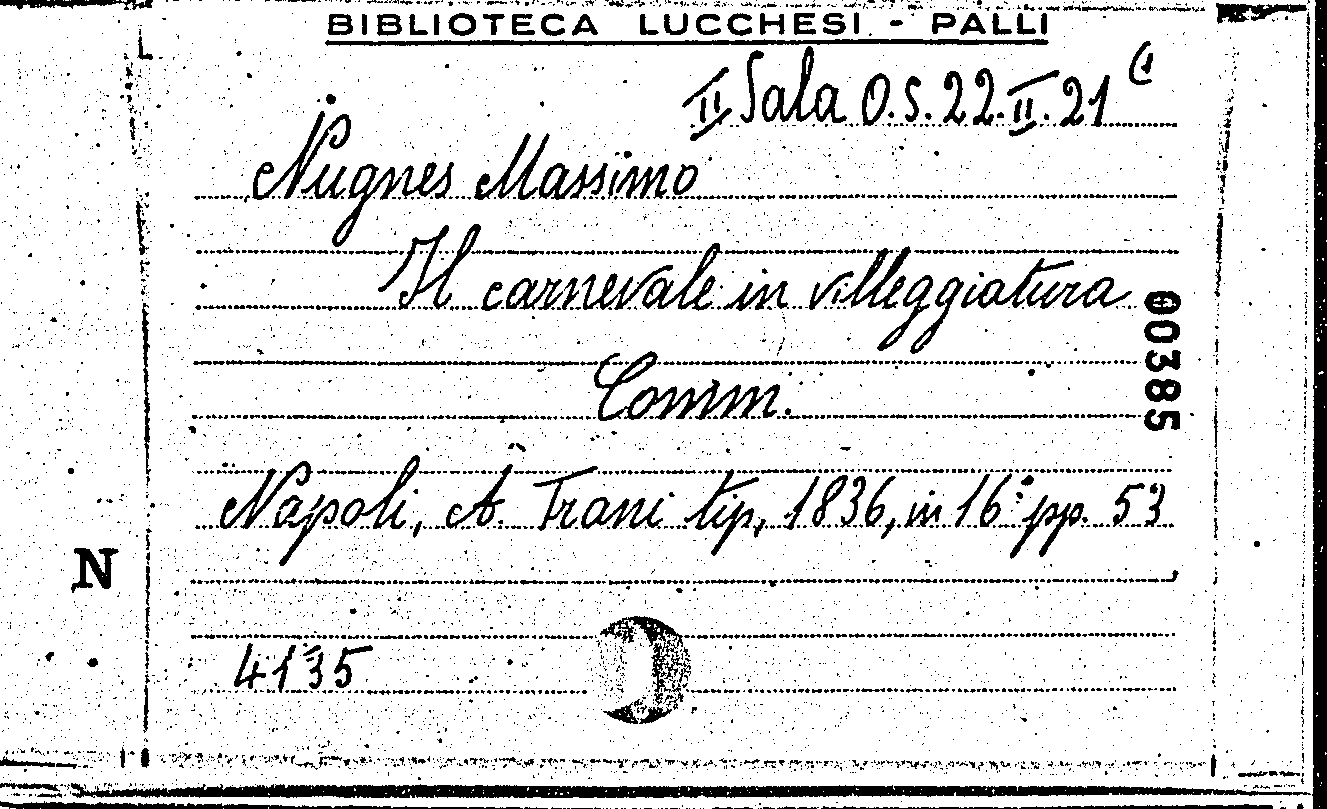 BIBLIOTECA LUCCHESI - PALLI
II Sala O.S. 22.II.21 (1
Nugnes Massimo
Il carnevale in villeggiatura
00385
Comm.
Napoli, A. Trani tip, 1836, in 16° pp. 53
N
4135